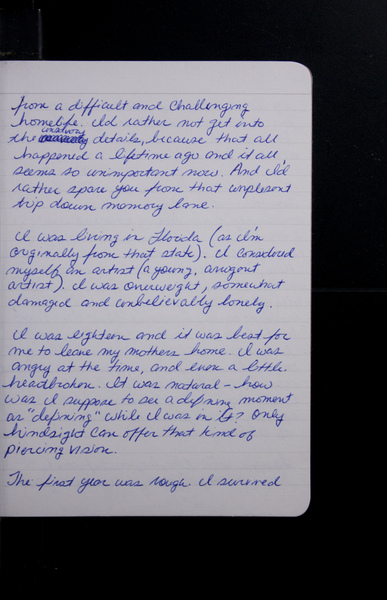 from a difficult and challenging
homelife. I'd rather not get into
the unsavory details, because that all
happened a lifetime ago and it all
seems so unimportant now. And I'd
rather spare you from that unplesent
trip down memory lane.
I was living in Florida (as I'm
originally from that state). I considered
myself an artist (a young, arrogant
artist). I was overweight, somewhat
damaged and unbelievably lonely.
I was eighteen and it was best for
me to leave my mothers home. I was
angry at the time, and even a little
heartbroken. It was natural - how
was I suppose to see a defining moment
as "defining" while I was in it? Only
hindsight can offer that kind of
piercing vision.
The first year was rough. I survived